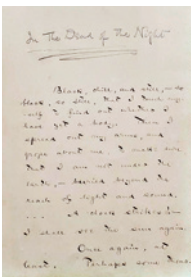 In the Dead of the Night
Black, still, and still, so
black, so still, that I touch my-
self to find out whether I
have yet a body. Then I
spread out my arms, and
grope about me, to make sure
that I am not under the
earth, – buried beyond the
reach of light and sound.
.... A clock strikes:–
I shall see the sun again.
Once again, at
least. Perhaps some